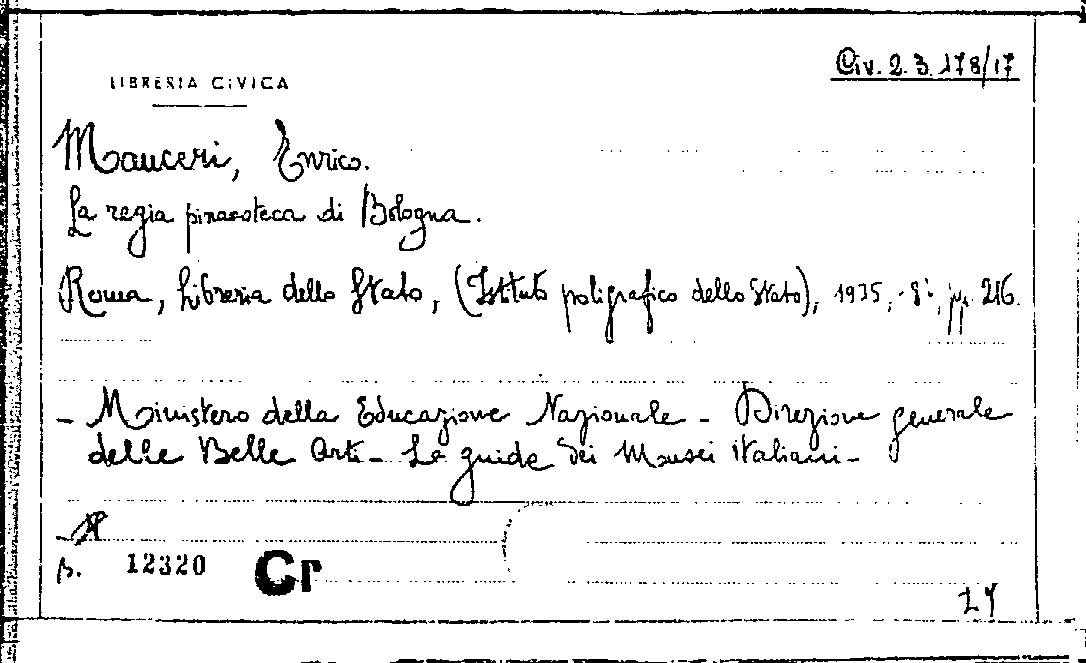 Civ. 2. 3. 178/17
LIBRERIA CIVICA
Mauceri, Enrico.
La regia pinacoteca di Bologna.
Roma, Libreria dello Stato, (Istituto poligrafico dello Stato), 1935, -8°, pp. 216.
- Ministero della Educazione Nazionale - Direzione generale
delle Belle Arti - Le guide dei Musei italiani -
B. 12320 Cr